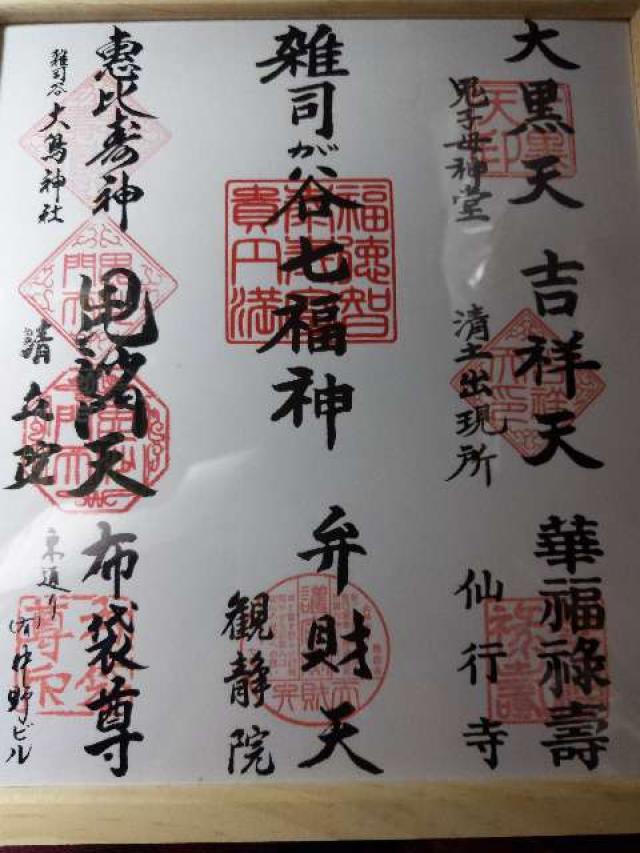 大黒天
鬼子母神堂
吉祥天
清土出現所
華福祿壽
仙行寺
雑司が谷七福神
福徳智
貴円満
弁財天
観静院
恵比寿神
雑司谷
大鳥神社
毘沙門天
清立院
布袋尊
東通り
(有)中野ビル